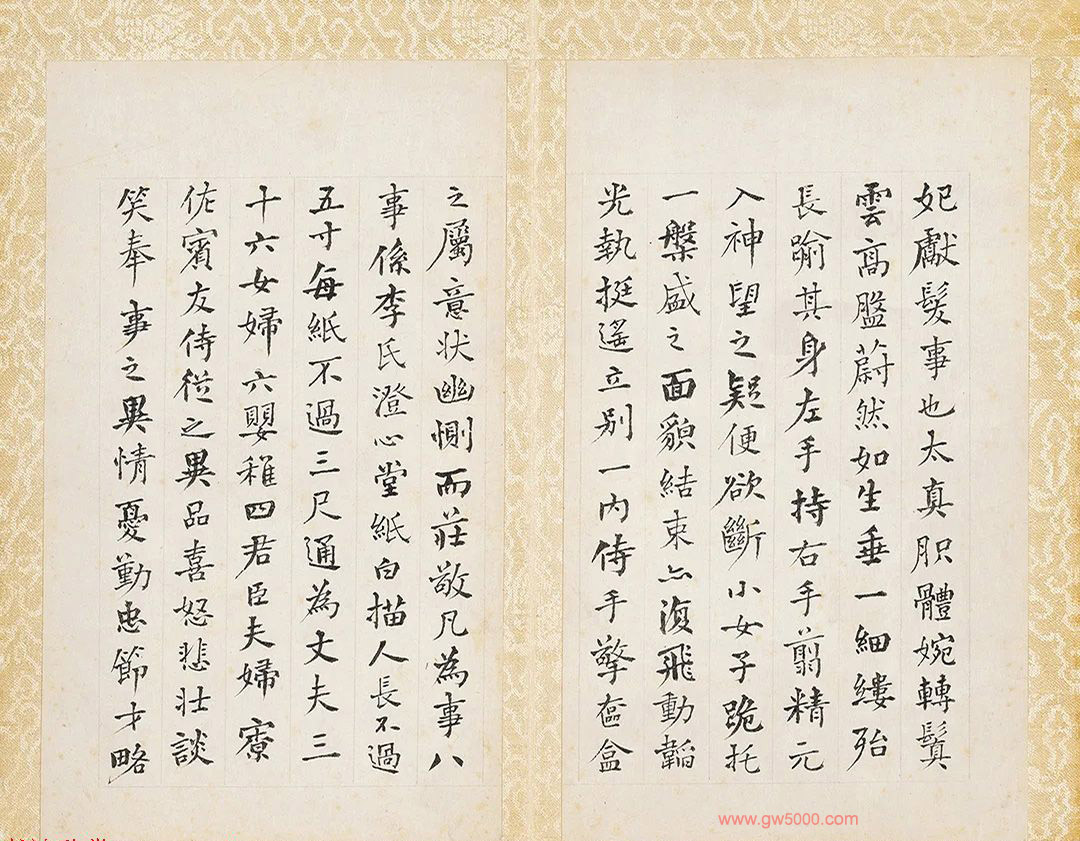 妃獻髮事也太真肌體婉轉鬒
雲高盤蔚然如生垂一細縷殆
長踰其身左手持右手翦精元
入神望之疑便欲斷小女子跪托
一槃盛之面貌結束亦復飛動韜
光執挺遥立別一内侍手擎奩盒
之屬意状幽惻而莊敬凡為事八
事係李氏澄心堂紙白描人長不過
五寸每紙不過三尺通為丈夫三
十六女婦六嬰稚四君臣夫婦寮
佐賓友侍從之異品喜怒悲壮談
笑奉事之異情憂勤忠節才略
www.gw5000.com